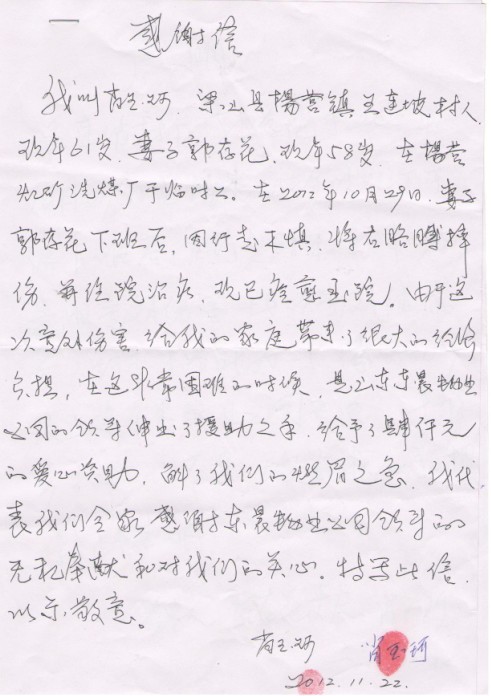 感谢信
我叫肖玉珂,梁山县杨营镇王连坡村人
现年61岁,妻子郭存花,现年58岁,在杨营
煤矿洗煤厂干临时工。在2012年10月29日,妻子
郭存花下班后,因行走不慎,将右胳膊摔
伤,并住院治疗,现已痊愈出院。由于这
次意外伤害,给我的家庭带来了很大的经济
负担,在这非常困难的时候,是山东东晨物业
公司的领导伸出了援助之手,给予了肆仟元
的爱心资助,解了我们的燃眉之急,我代
表我们全家感谢东晨物业公司领导的
无私奉献和对我们的关心。特写此信,
以示敬意。
肖玉珂 肖玉珂
2012.11.22.